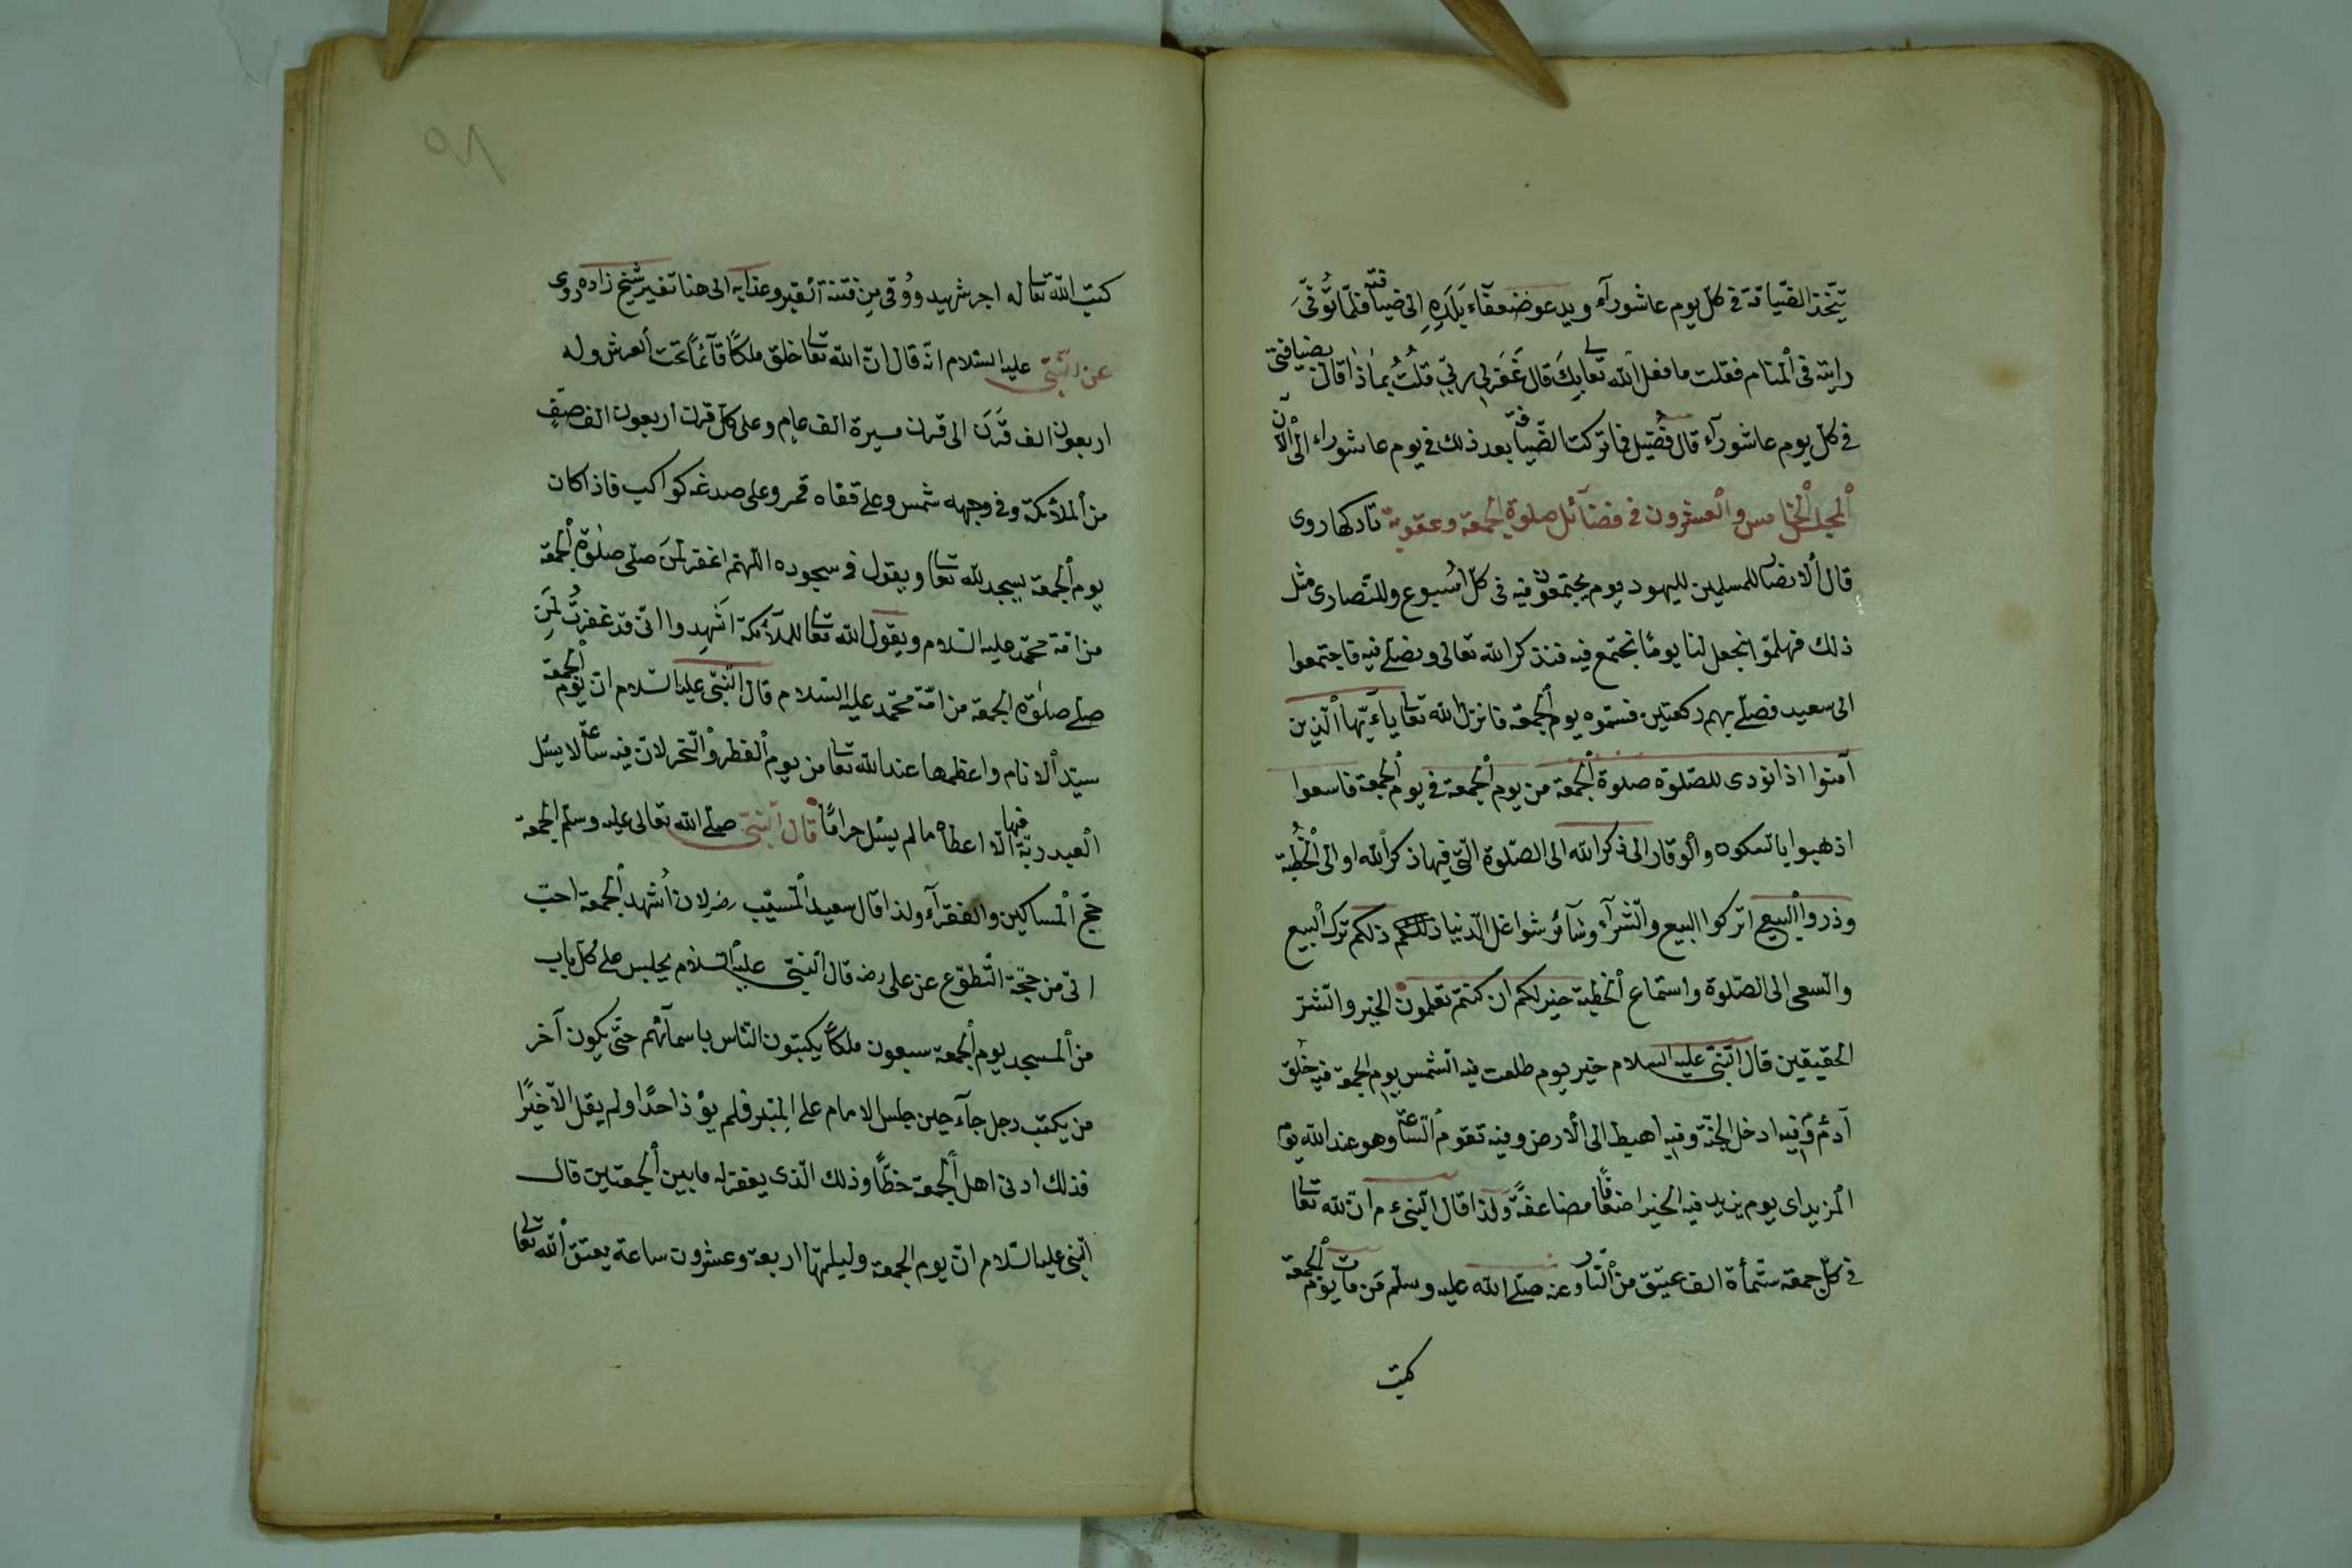 يتّخذ الضّيافة فى كلّ يوم عاشورآء ويدعو ضعفآء بَلَدِهِ الى ضيافته فلمّا تُوُفّىَ
رايته فى الْمنام فقلت ما فعل اللّه تعالى بِكَ قال غَفَرَلِى ربّى قلتُ بماذا قال بضيافتى
فى كلّ يوم عاشورآء قال فُضَيل فما تركت الضّيافة بعد ذلك فى يوم عاشوراء الى الْآن
اَلْمجلس الْخامس والْعشرون فى فضآئل صلوة الجمعة وعقوبة تاركها روى
قال الانصار للمسلمين لليهود يوم يجتمعون فيه فى كلّ اُسبوع وللنّصارى مثل
ذلك فهلمّوا نجعل لنا يومًا نجتمع فيه فنذكر اللّه تعالى ونصلّے فيه فاجتمعوا
الى سعيد فصلّے بهم ركعتين فسمّوه يوم الْجمعة فانزل اللّه تعالى ياءيّها الّذين
آمنوا اذا نودى للصّلوة صلوة الْجمعة من يوم الْجمعة فى يوم الْجمعة فاسعوا
اذهبوا بالسكون والْوقار الى ذكر اللّه الى الصّلوة الّتى فيها ذكر اللّه او الى الْخُطبة
وذروا الْبيع اتركوا البيع والشّرآء وسآئر شواغل الدّنيا ذلكم ذلكم ترك الْبيع
والسعى الى الصّلوة واستماع الْخطبة خير لكم ان كنتم تعلمون الخير والشّرّ
الحقيقين قال النّبىّ عليه السلام خير يوم طلعت فيه الشّمس يوم الجمعة فيه خُلق
آدمُ وفيه ادخل الجنّة وفيه اهبط الى الْارض وفيه تقوم السّاعة وهو عند اللّه يوم
الْمزيد اى يوم يزيد فيه الخير اضعافًا مضاعفةً ولذا قال النّبىّ ءم انّ للّه تعالى
فى كلّ جمعة ستّمأة الف عتيق من النّار وعنه صلّے اللّه عليه وسلّم مَن مات يوم الْجمعة
كتب
كتب اللّه تعالى له اجر شهيد ووُقى مِن فتنة الْقبر وعذابه الى هنا تفسير شيخ زاده روى
عن النّبىّ عليه السّلام انّه قال انّ اللّه تعالى خلق ملكًا قآئمًا تحت الْعرش وله
اربعون الف قَرَن الى قرن مسيرة الف عامٍ وعلى كلّ قرن اربعون الف صفٍّ
من الْملآئكة وفى وجهه شمس وعلى قفاه قمر وعلى صدغه كواكب فاذا كان
يوم الْجمعة يسجد للّه تعالى ويقول فى سجوده اللّهمّ اغفر لمَن صلّى صلوة الْجمعة
من امّة محمّد عليه السّلام ويقول اللّه تعالى للملآئكة اَشهِدوا انّى قد غفرتُ لمَن
صلّے صلوة الجمعة من امّة محمّد عليه السّلام قال النّبىّ عليه السّلام انّ يوم الْجمعة
سيّد الْانام واعظمها عند اللّه تعالى من يوم الْفطر والنّحر لانّ فيه ساعة لا يسئل
الْعبد ربّه فيها الّا اعطاه ما لم يسئل حرامًا قال النّبىّ صلّے اللّه تعالى عليه وسلّم الجمعة
حجّ الْمساكين والفقرآء ولذا قال سعيد الْمسيّب رضه لان اُشهد الْجمعة احبّ
الىّ من حجّة التّطوّع عن على رضه قال النّبىّ عليه السّلام يجلس على كلّ باب
من الْمسجد يوم الْجمعة سبعون ملكًا يكتبون النّاس باسمآئهم حتّى يكون آخر
من يكتب رجل جآء حين جلس الامام على الْمنبر فلم يؤذ احدًا ولم يقل الّا خيرًا
فذلك ادنى اهل الْجمعة حظًّا وذلك الّذى يغفر له ما بين الْجمعتين قال
النّبىّ عليه السّلام انّ يوم الجمعة وليلتها اربعة وعشرون ساعة يعتق اللّه تعالى